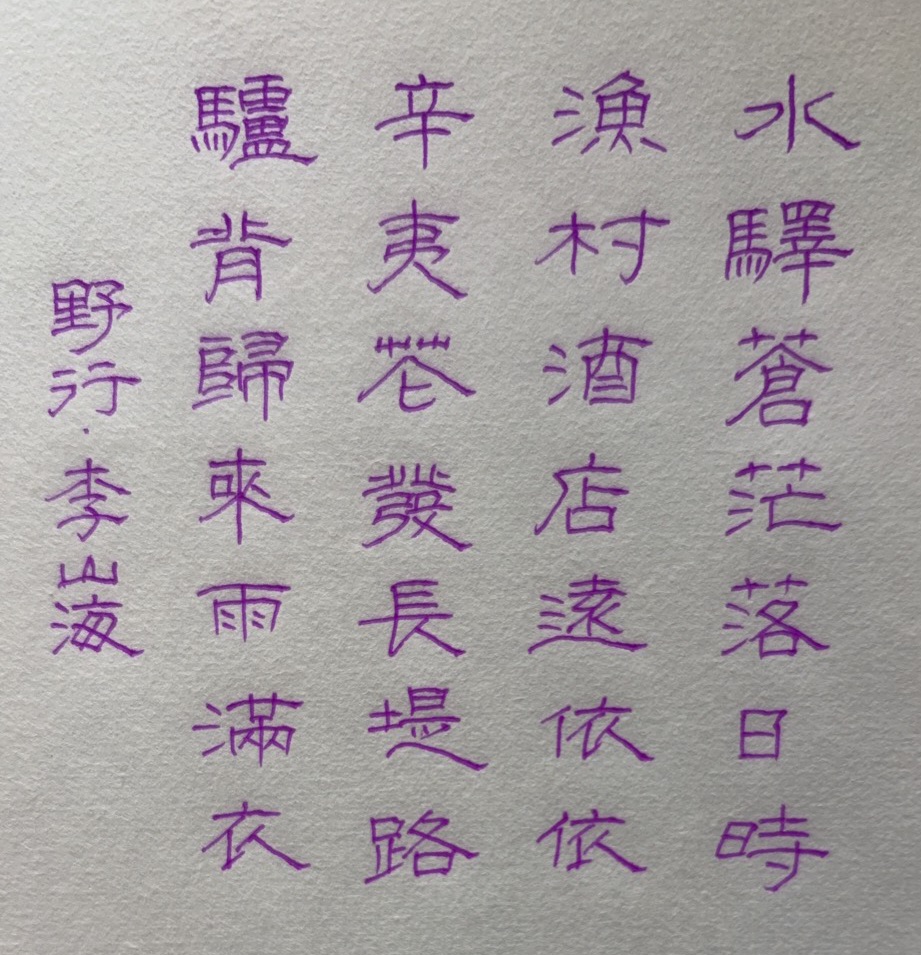 水驛蒼茫落日時
漁村酒店遠依依
辛夷花發長堤路
驢背歸來雨滿衣
野行·李山海